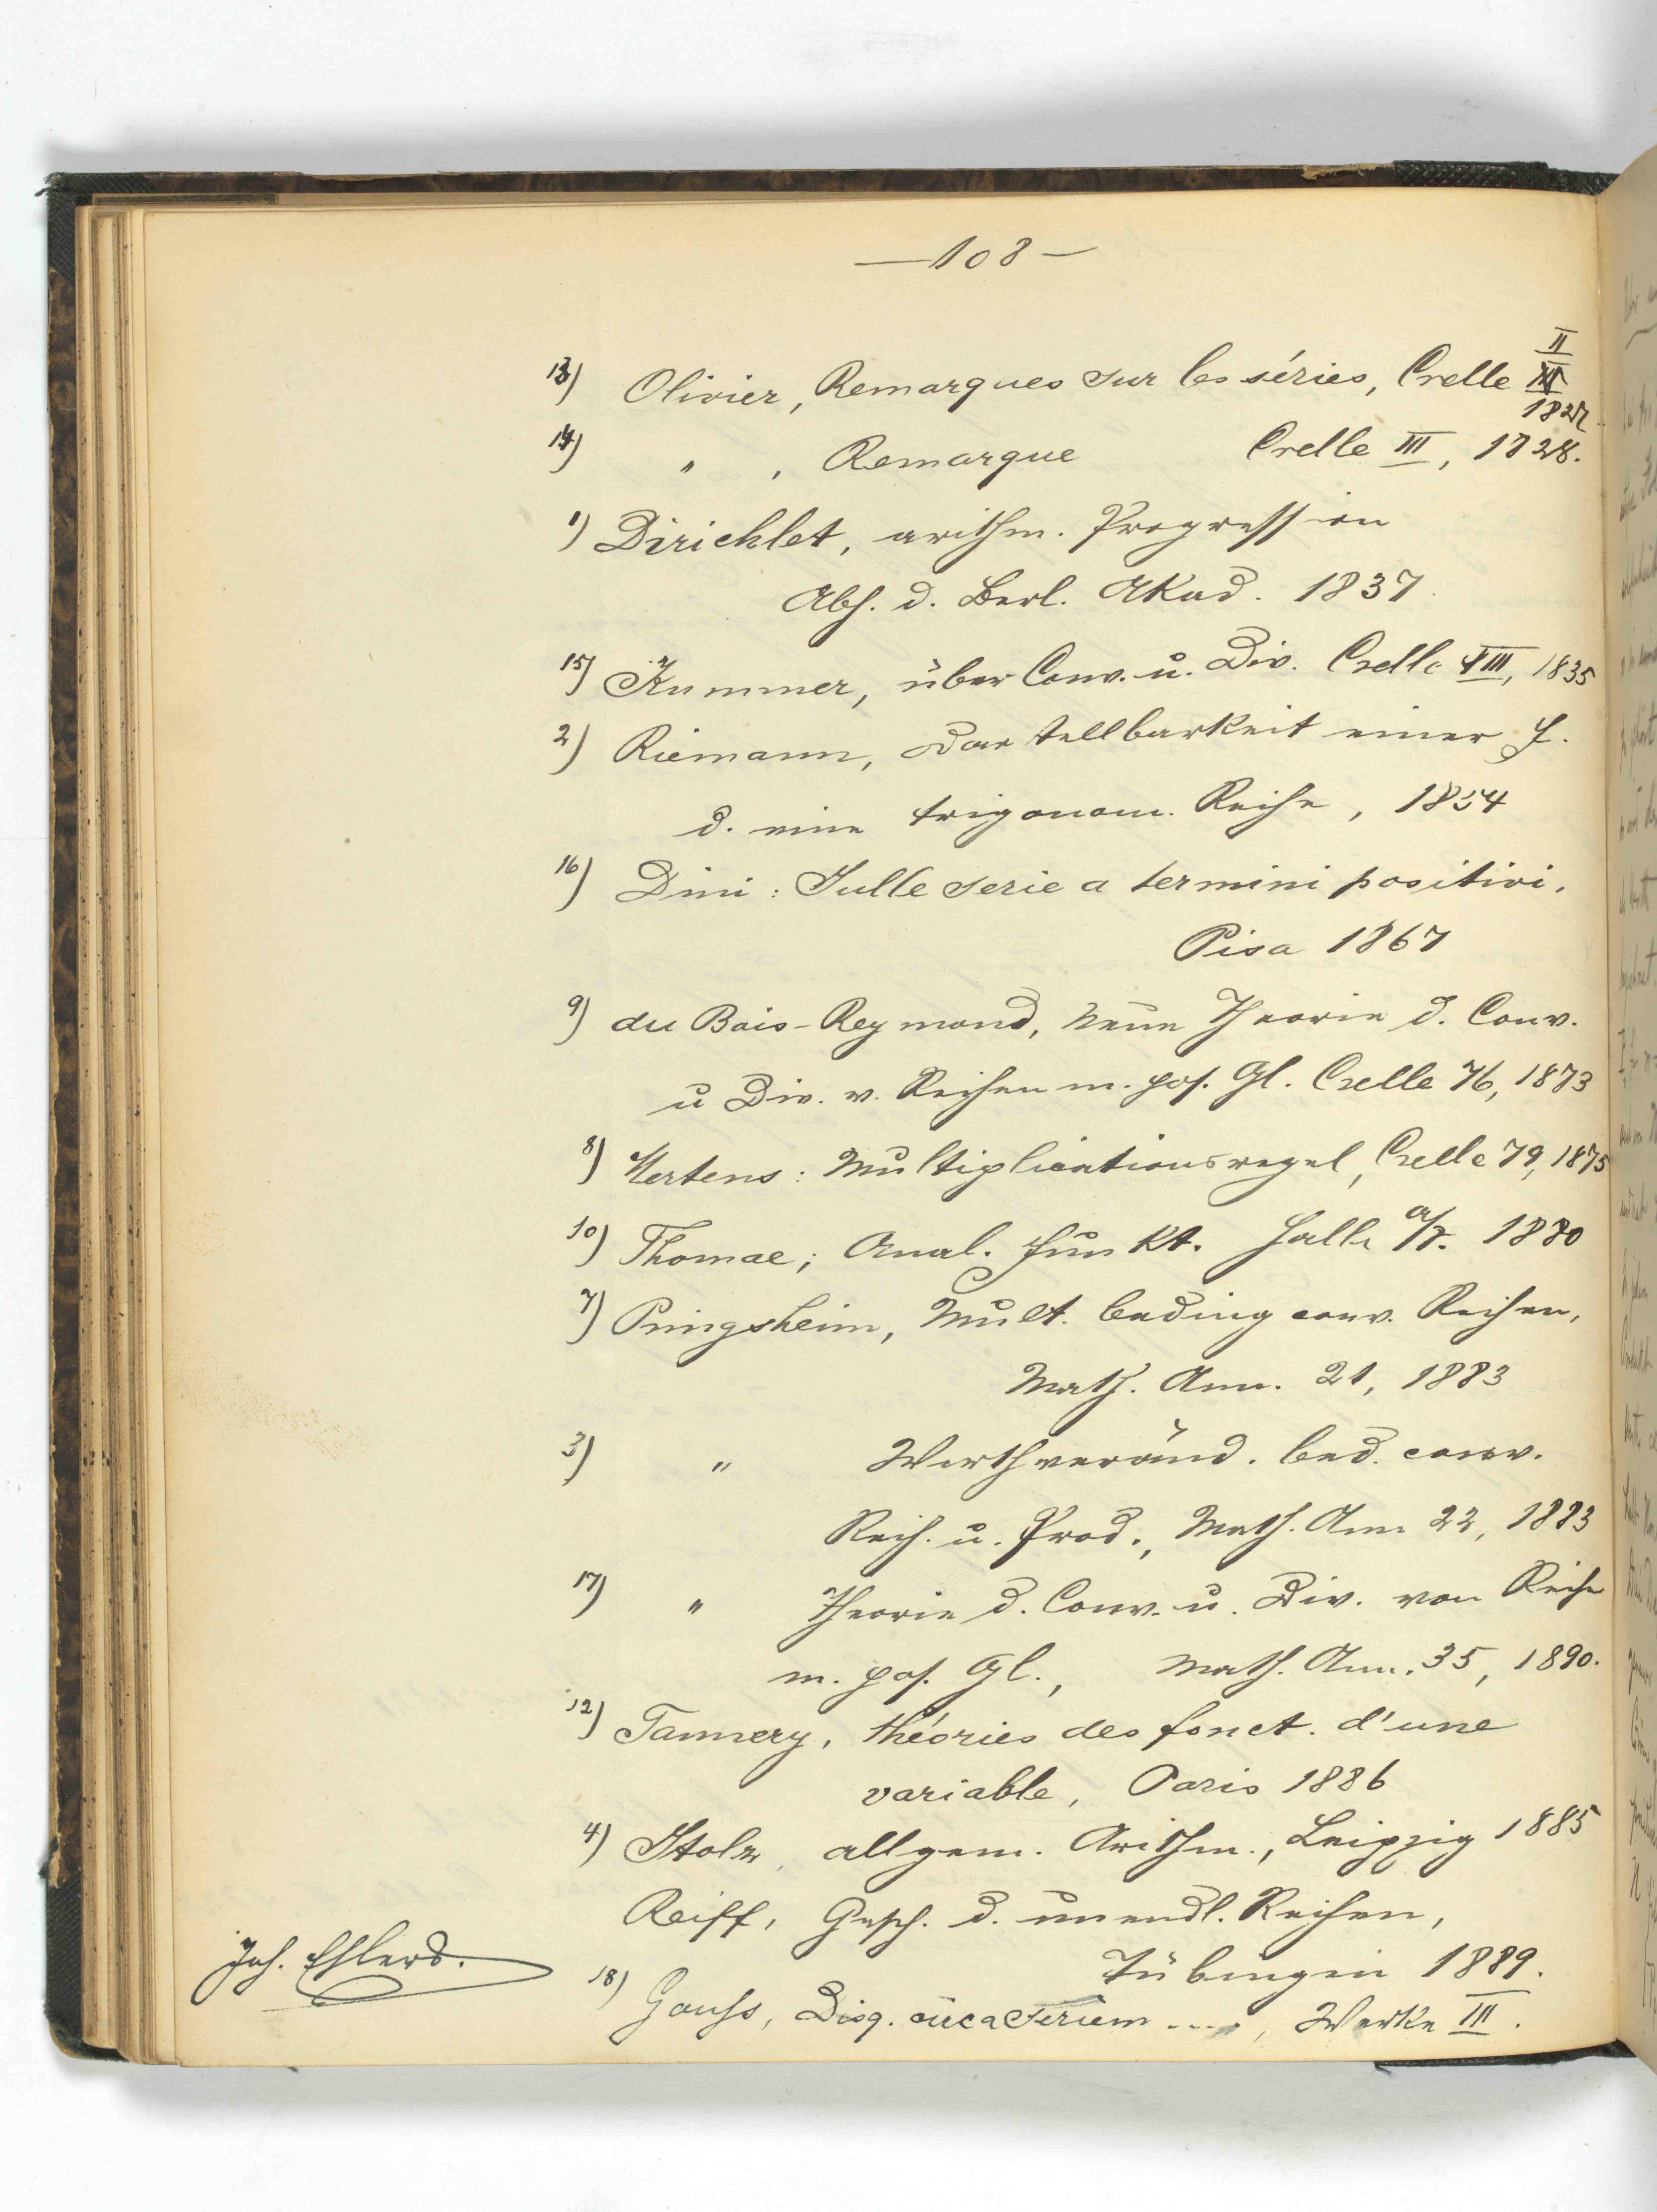 — 108 —
II
13) Olivier, Remarques sur les séries, Crelle
1827.
14) " , Remarque Crelle III, 1828.
1) Dirichlet, arithm. Progression
Abh. d. Berl. Akad. 1837.
15) Kummer, über Conv. u. Div. Crelle XIII, 1835
2) Riemann, Darstellbarkeit einer f.
d. eine trigonom. Reihe, 1854
16) Dini: Sulle serie a termini positivi.
Pisa 1867
9) du Bois-Reymond, neue Theorie d. Conv.
u Div. v. Reihen m. pos. Gl. Crelle 76, 1873
8) Mertens: Multiplicationsregel, Crelle 79, 1875
10) Thomae; Anal. Funkt. Halle a/S. 1880
7) Pringsheim, Mult. beding conv. Reihen,
Math. Ann. 21, 1883
3) " Werthveränd. bed. conv.
Reih. u. Prod., Math. Ann 22, 1883
17) " Theorie d. Conv. u. Div. von Reihe
m. pos. Gl., Math. Ann. 35, 1890.
12) Tannery, théories des fonct. d'une
variable, Paris 1886
4) Stolz, allgem. Arithm., Leipzig 1885
Reiff, Gesch. d. unendl. Reihen,
Tübingen 1889.
18) Gauss, Disq. circa seriem ...., Werke III.
Joh. Ehlers.